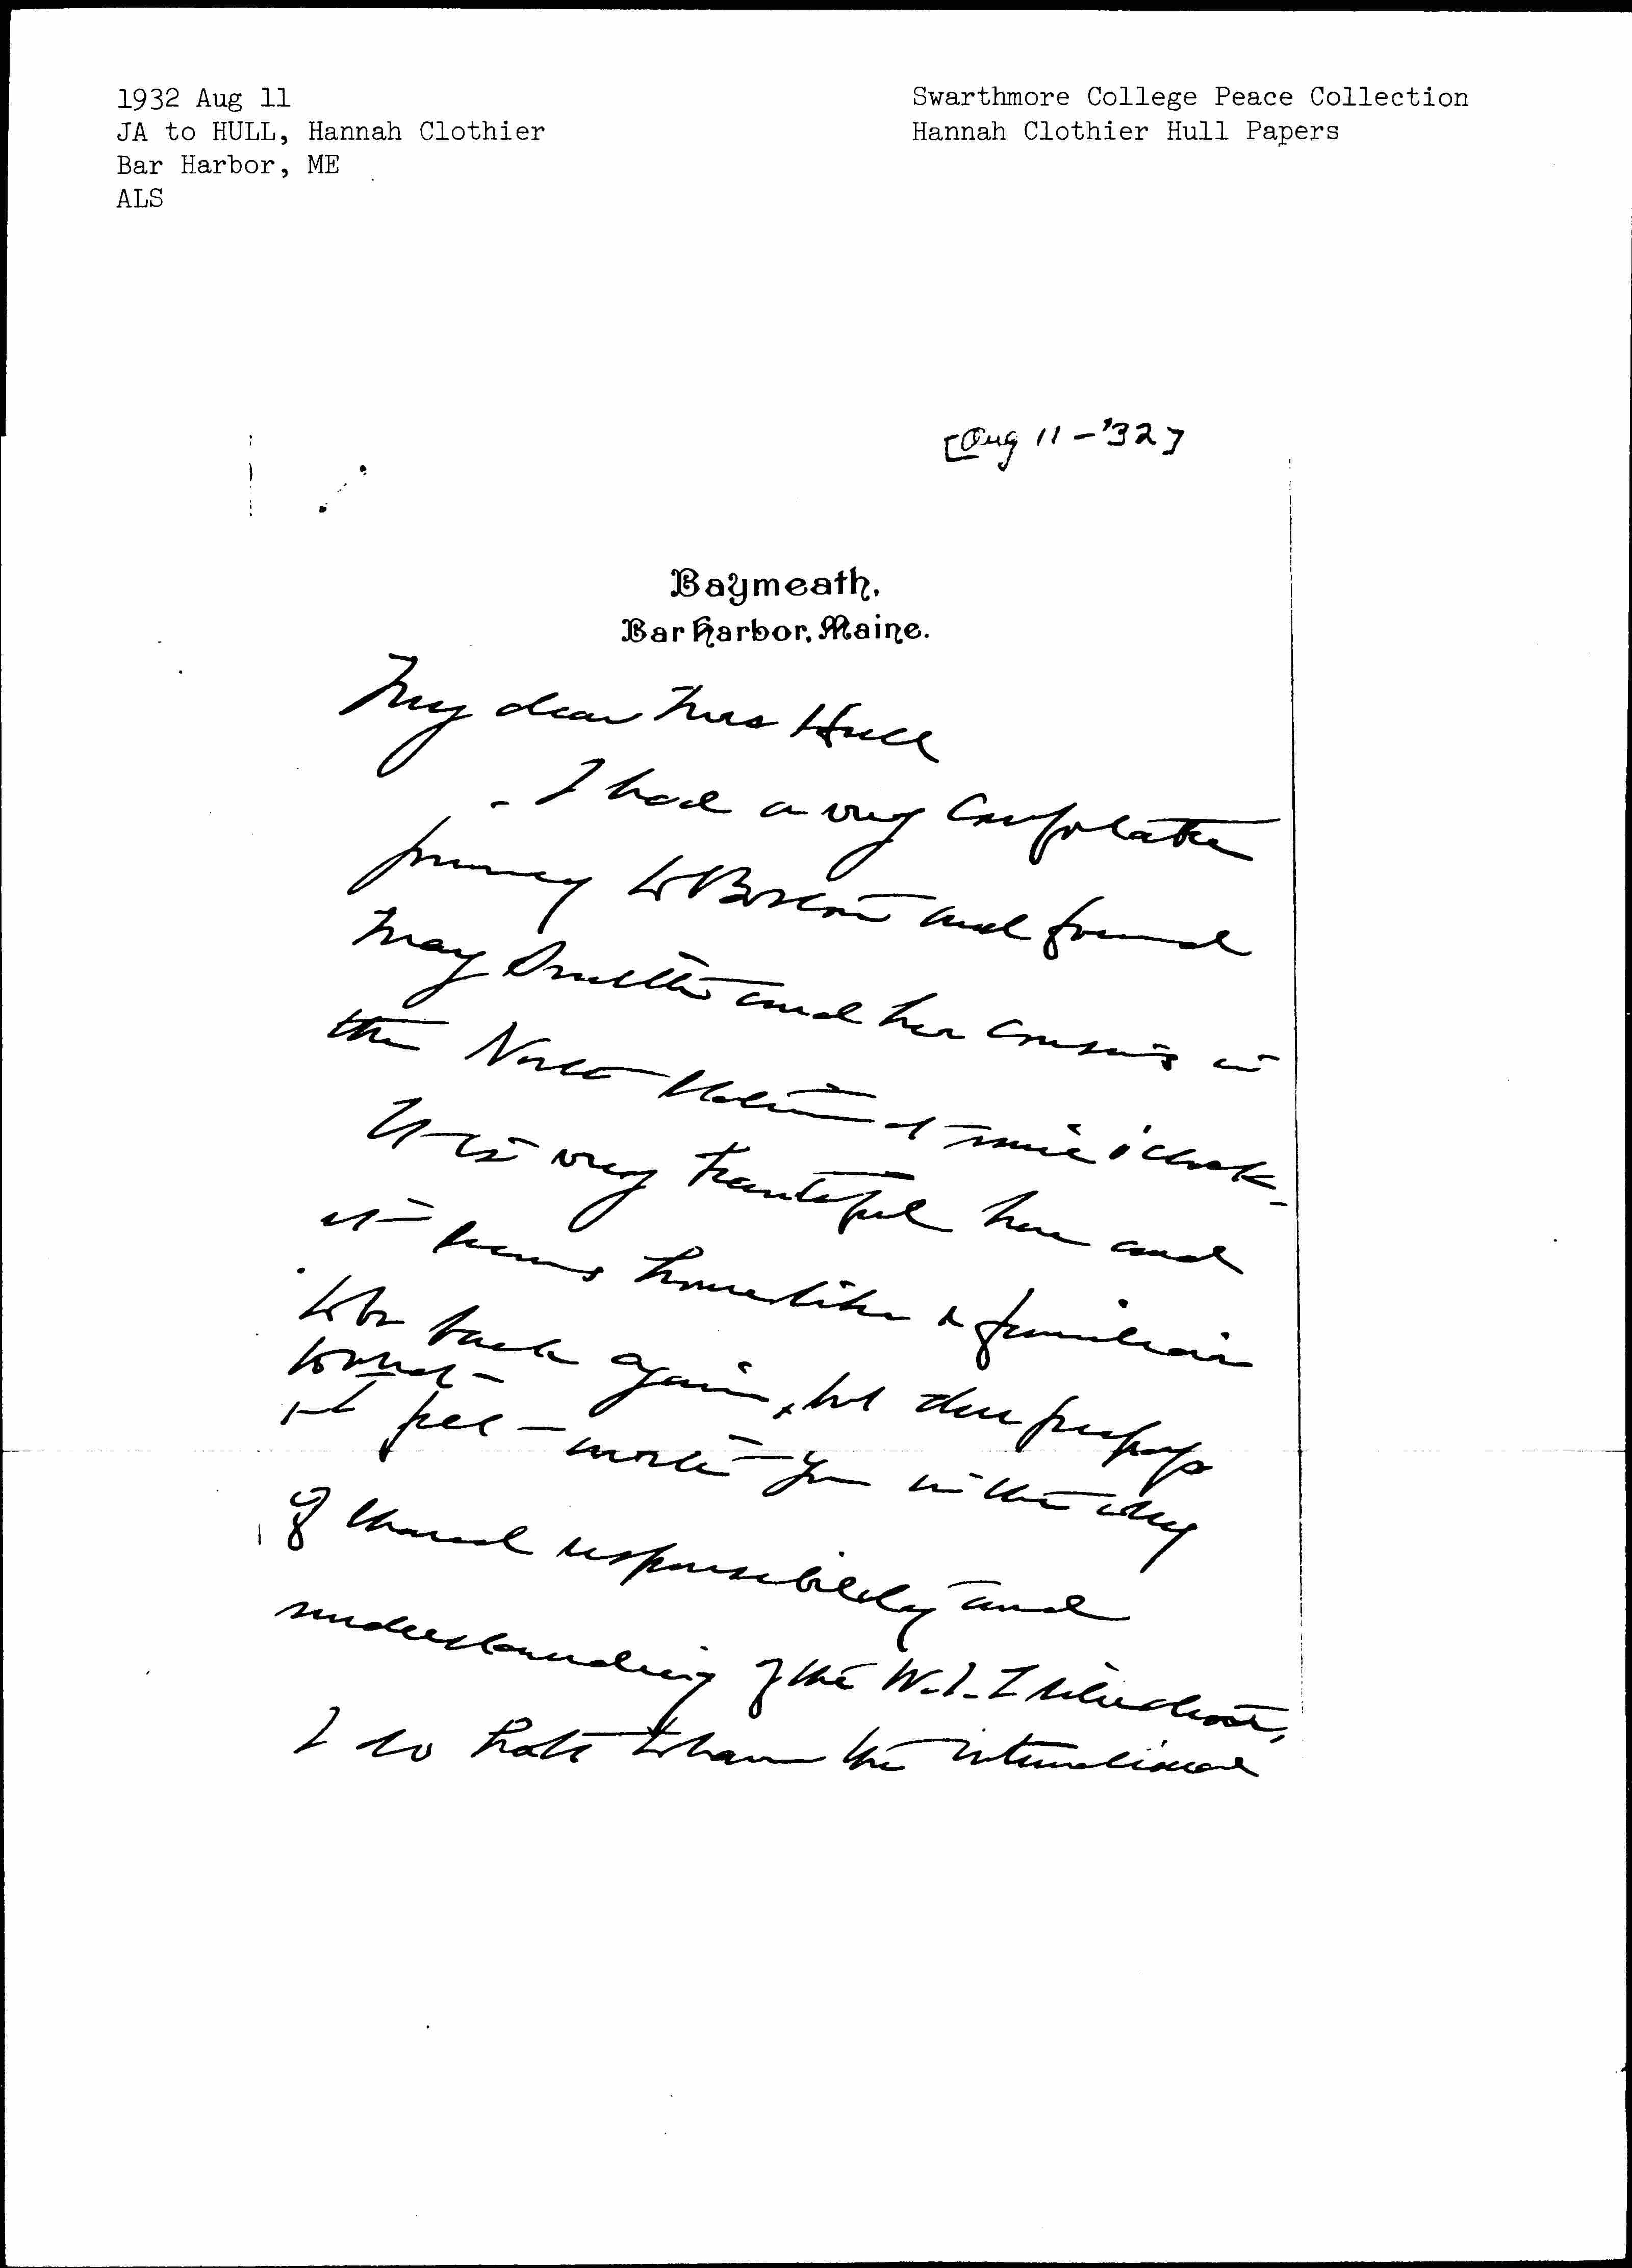 1932 Aug 11
JA to HULL, Hannah Clothier
Bar Harbor, ME
ALS
Swarthmore College Peace Collection
Hannah Clothier Hull Papers
[Aug 11 - '32]
Baymeath,
Bar Harbor, Maine.
My dear Mrs Hull
- I had a very comfortable
journey to Boston and found
Mary Smith and her cousins in
the North Station at nine o'clock -
It is very beautiful here and
it seems homelike & familiar
to be back again, but
I feel
of shared responsibility and
understanding of the W.I.L.
I do hate to have the international